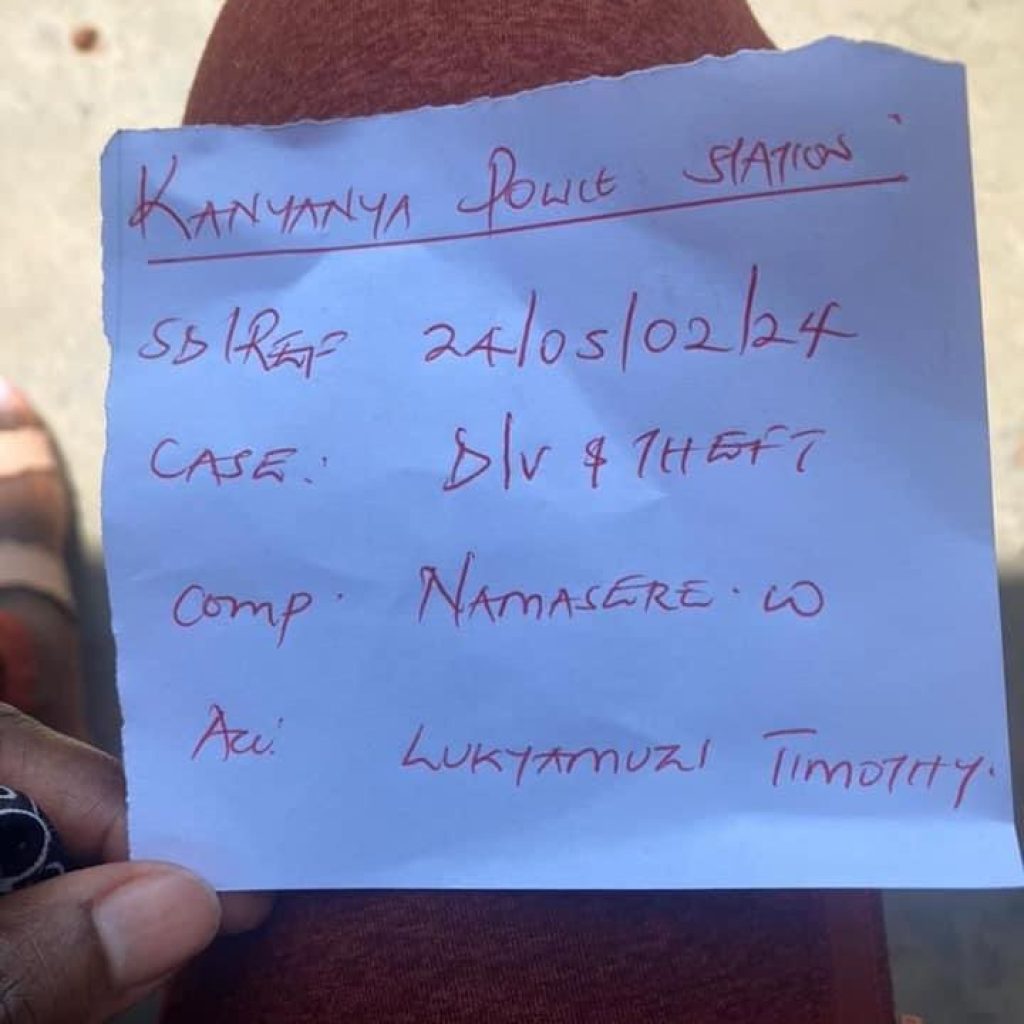 KANYANYA POLICE STATION
SD/REF 24/05/02/24
CASE: D/V & THEFT
COMP. NAMASERE. W
Acc: LUKYAMUZI TIMOTHY.